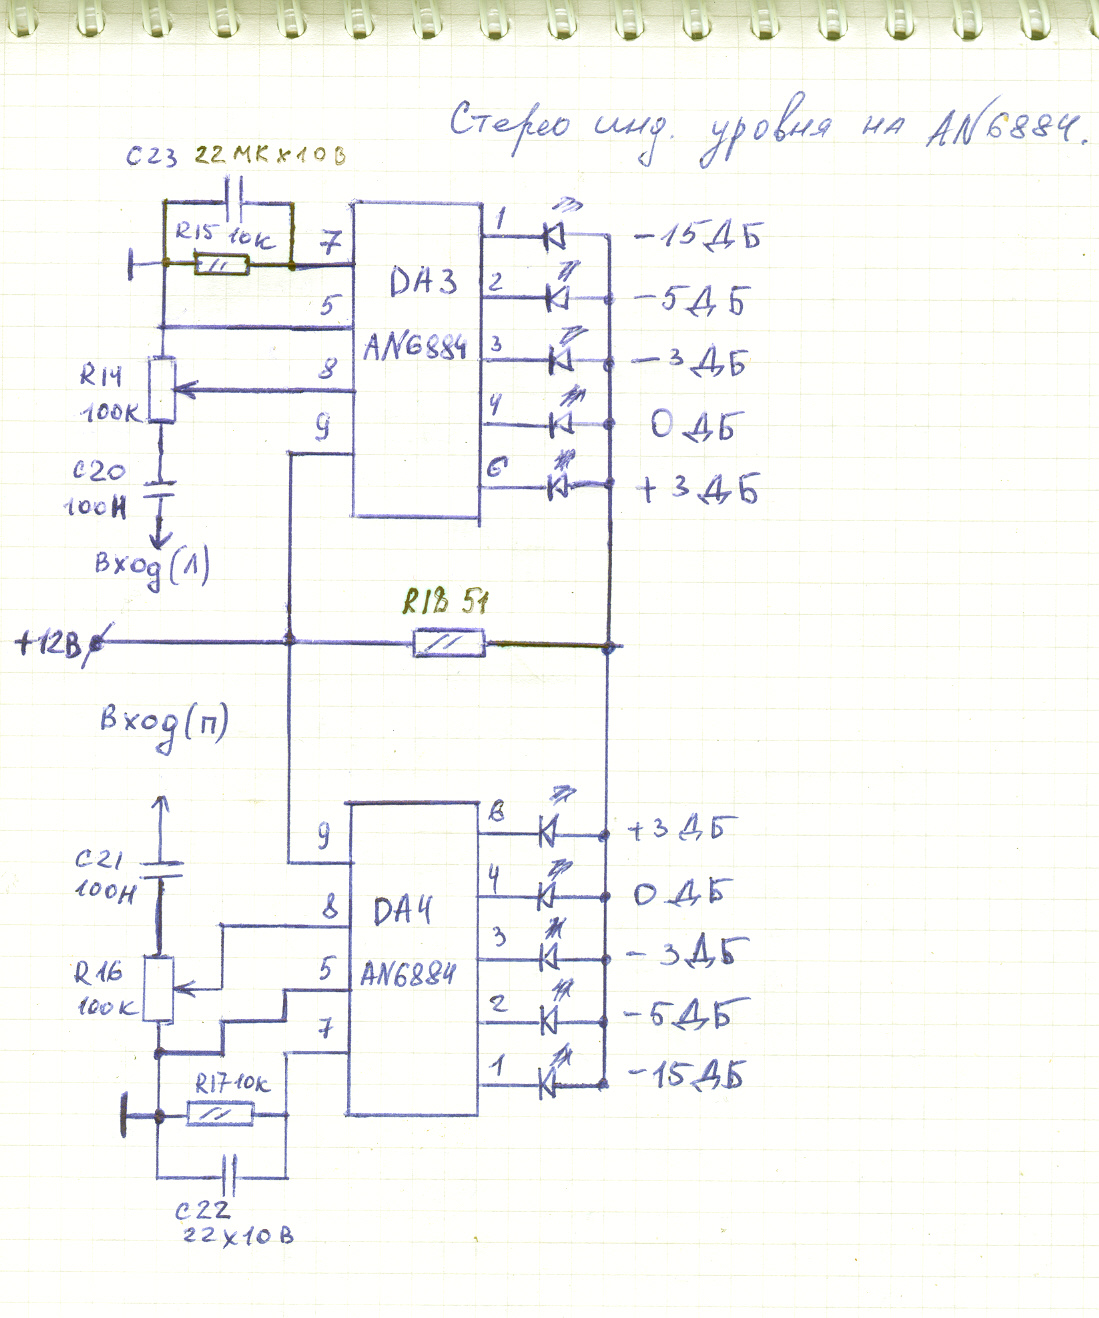 Стерео инд. уровня на AN6884.
C23 22МКХ10В
R15 10К
7
5
8
9
DA3
AN6884
1
2
3
4
6
-15ДБ
-5ДБ
-3ДБ
0ДБ
+3ДБ
R14
100К
C20
100Н
Вход(Л)
R18 51
+12В
Вход(п)
C21
100Н
R16
100К
9
8
5
7
DA4
AN6884
6
4
3
2
1
+3ДБ
0ДБ
-3ДБ
-5ДБ
-15ДБ
R17 10К
C22
22Х10В